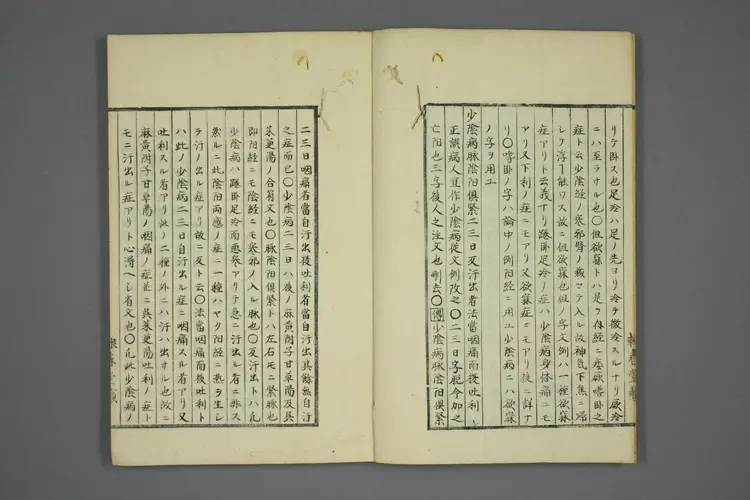 リテ臥ス也足冷ハ足ノ先ヨリ冷テ微冷スルナリ厥冷
ニハ至ラサル也〇但欲寐トハ是ヲ
症ト云少陰経ノ寒邪腎ノ マテ入ル故神気下焦ニ帰
レク浮 能ワス故ニ但欲寐也但ノ字文例ハ一種欲寐
症アリト云義ナリ踡臥足冷ノ症ハ少陰病身体痛ニモ
アリ又下利ノ症ニモアリ又欲寐症ニモアリ後ニ詳ナ
リ〇嗜臥ノ字ハ論中ノ例陽経ニ用ユ少陰病ニハ欲寐
ノ字ヲ用ユ
少陰病脉陰陽倶緊二三日反汗出者法當咽痛而後吐利
正誤病人更作少陰病従文例改之〇二三日字脱今加之
亡陽也三字後人之注文也刪去〇傳少陰病脉陰陽倶緊
二三日咽痛者當自汗出後吐利者當自汗出其餘無自汗
之症而已〇少陰病二三日ハ後ノ麻黄附子甘草湯及呉
茱萸湯ノ合符文也〇脉陰陽倶緊トハ左右モニ緊脉也
即陽経ニモ陰経ニモ寒邪ノ入ル脉也〇反汗出トハ凡
少陰病ハ踡臥足冷而悪寒アリテ急ニ汗出ル者ニ非ス
然ルニ此陰陽両感ノ症ニ一種ハヤク陽経ニ熱ヲ生シ
テ汗ノ出ル症アリ故ニ反ト云〇法當咽痛而後吐利ト
ハ此ノ少陰病二三日自汗出ル症ニ咽痛スル者アリ又
吐利スル者アリ此ノ二種ノ外ニハ汗ハ出サル也故ニ
麻黄附子甘草湯ノ咽痛ノ症並ニ呉茱萸湯吐利ノ症ト
モニ汗出ル症アリト心得ヘシ省文也〇凡此少陰病ノ